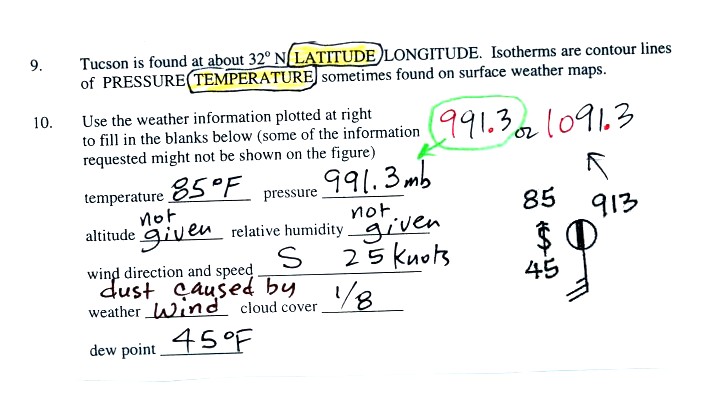 9. Tucson is found at about 32° N LATITUDE LONGITUDE. Isotherms are contour lines
of PRESSURE TEMPERATURE sometimes found on surface weather maps.
10. Use the weather information plotted at right
to fill in the blanks below (some of the information
requested might not be shown on the figure)
991.3 or 1091.3
temperature 85°F pressure 991.3 mb
altitude not given relative humidity not given
wind direction and speed S 25 knots
weather dust caused by wind cloud cover 1/8
dew point 45°F
85 913
$
45